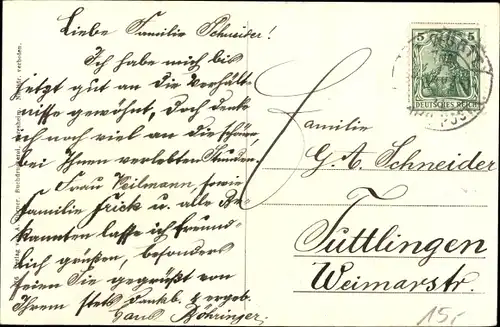 Liebe Familie Schneider!
Ich habe mich bis
jetzt gut an die Verhält-
nisse gewöhnt, doch denke
ich noch viel an die schönen,
bei Ihnen verlebten Stunden.
Frau Weilmann sowie
Familie Frick u. alle Be-
kannten lasse ich freund-
lich grüßen, besonders
seien Sie gegrüßt von
Ihrem stets dankb. & ergeb.
Hans Böhringer.
5 5
DEUTSCHES REICH
Familie
G. A. Schneider
Tuttlingen
Weimarstr.
15,-